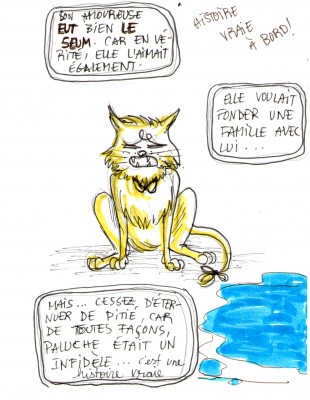 SON AMOUREUSE
EUT BIEN LE
SEUM. CAR EN VÉ-
RITÉ, ELLE L'AIMAIT
ÉGALEMENT.
HISTOIRE
VRAIE
À BORD!
ELLE VOULAIT
FONDER UNE
FAMILLE AVEC
LUI...
MAIS... CESSEZ D'ÉTER-
NUER DE PITIÉ, CAR
DE TOUTES FAÇONS,
PALUCHE ÉTAIT UN
INFIDÈLE... c'est une
histoire vraie